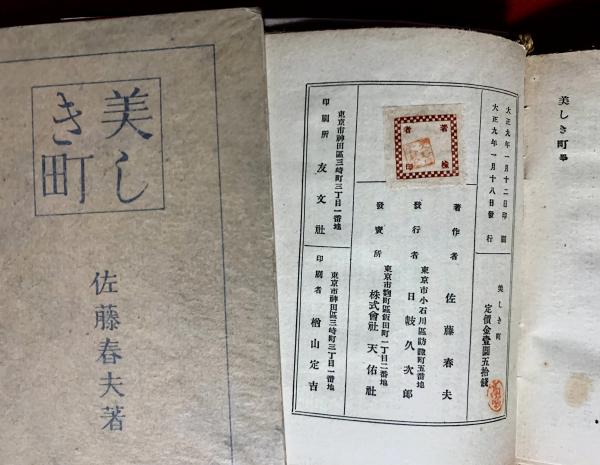 美し
き町
佐藤春夫著
美しき町 畢
大正九年一月十二日印刷
大正九年一月十八日發行
美しき町
定價金壹圓五拾錢
著作者 佐藤春夫
東京市小石川區諏訪町五番地
發行者 日𢈘久次郎
東京市麴町區飯田町二丁目二番地
發賣所 株式會社 天佑社
著檢
者印
東京市神田區三崎町三丁目一番地
印刷所 友文社
東京市神田區三崎町三丁目一番地
印刷者 檜山定吉